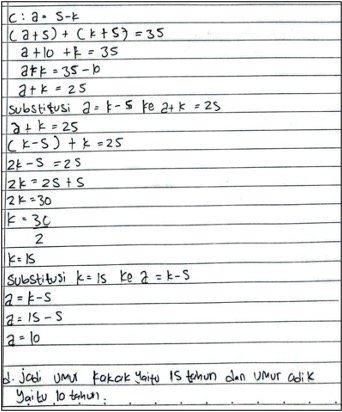 C : a = 5-k
(a+5) + (k+5) = 35
a+10 +k = 35
a+k = 35 - 10
a+k = 25
Substitusi a = k-5 ke a+k = 25
a + k = 25
(k-5) + k = 25
2k-5 = 25
2k = 25 + 5
2k = 30
k = 30
2
k = 15
Substitusi k = 15 ke a = k-5
a = k-5
a = 15 - 5
a = 10
d. jadi umur kakak yaitu 15 tahun dan umur adik
yaitu 10 tahun.